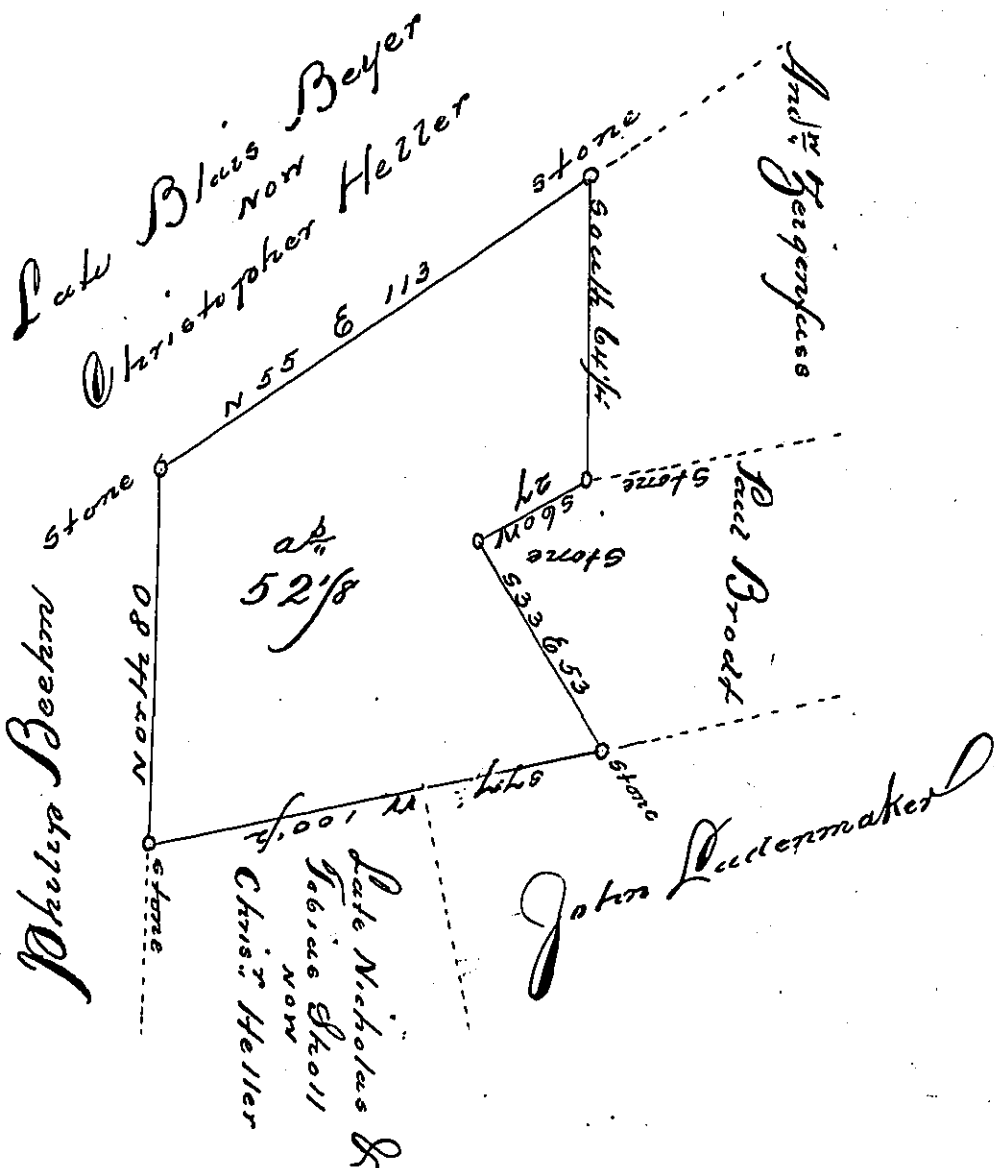 Late Blais Beyer
now
Christopher Heller
And.w Zergenfuss
stone
N 55 E 113
South 64 1/4
stone
stone
S 60 W
27
Paul Brodt
stone
S 33 E 53
a.s
52 1/8
Philip Beehm
North 80
stone
S 77 W 100 1/2
stone
John Ludenmaker
Late Nicholas &
Tobias Sholl
now
Chris.r Heller